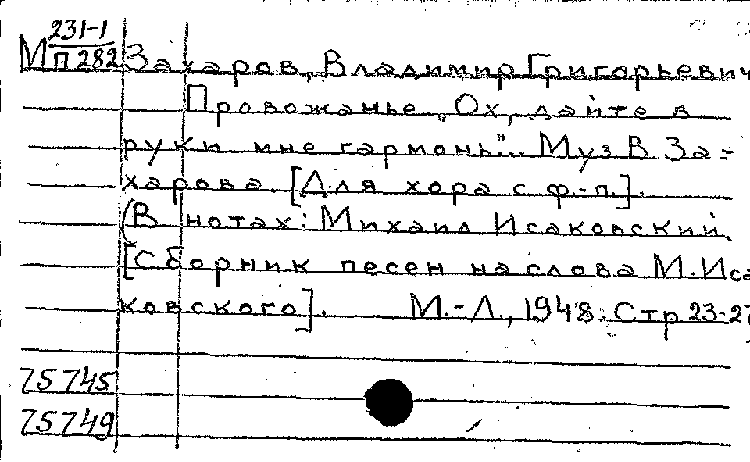 М 231-1
П 282 Захаров, Владимир Григорьевич
Провожанье „Ох, дайте в
руки мне гармонь". Муз В За-
харова. [Для хора с ф.-п.].
(В нотах: Михаил Исаковский.
[Сборник песен на слова М. Иса
ковского]. М.-Л., 1948. Стр 23-27
75745
75749